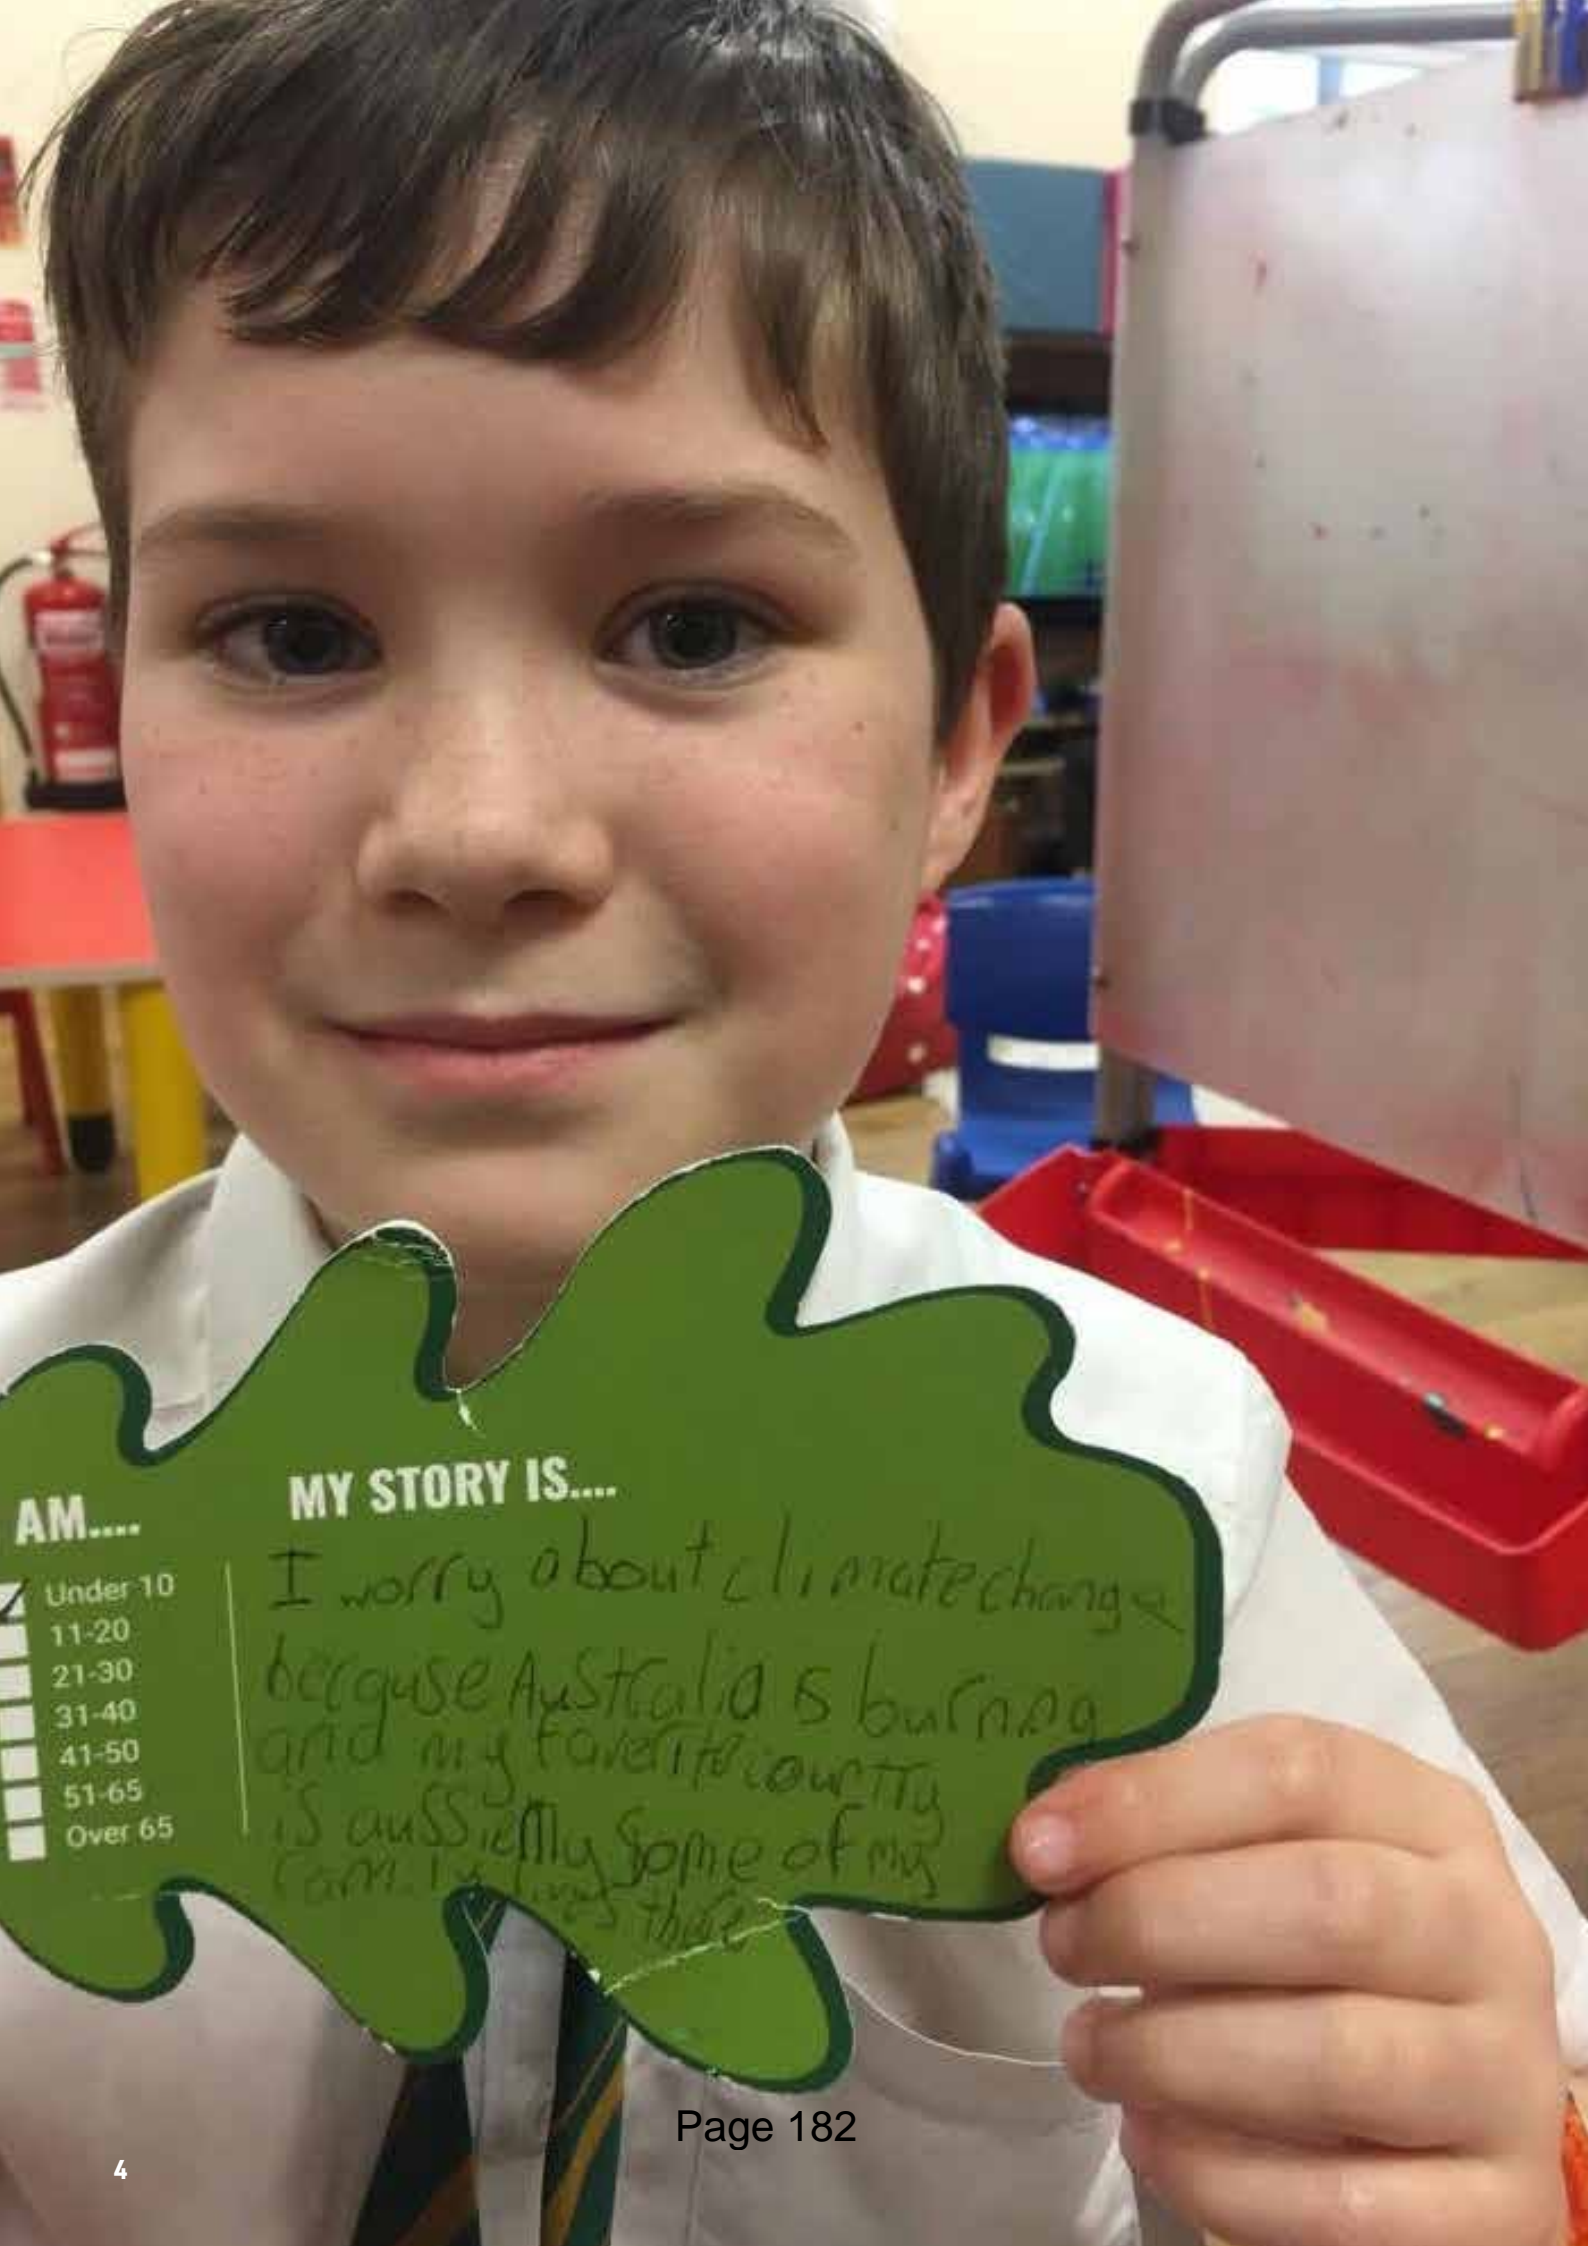 AM....
Under 10
11-20
21-30
31-40
41-50
51-65
Over 65
MY STORY IS....
I worry about climate change
because Australia is burning
and my faverite country
is aussie My some of my
family lives there
Page 182
4